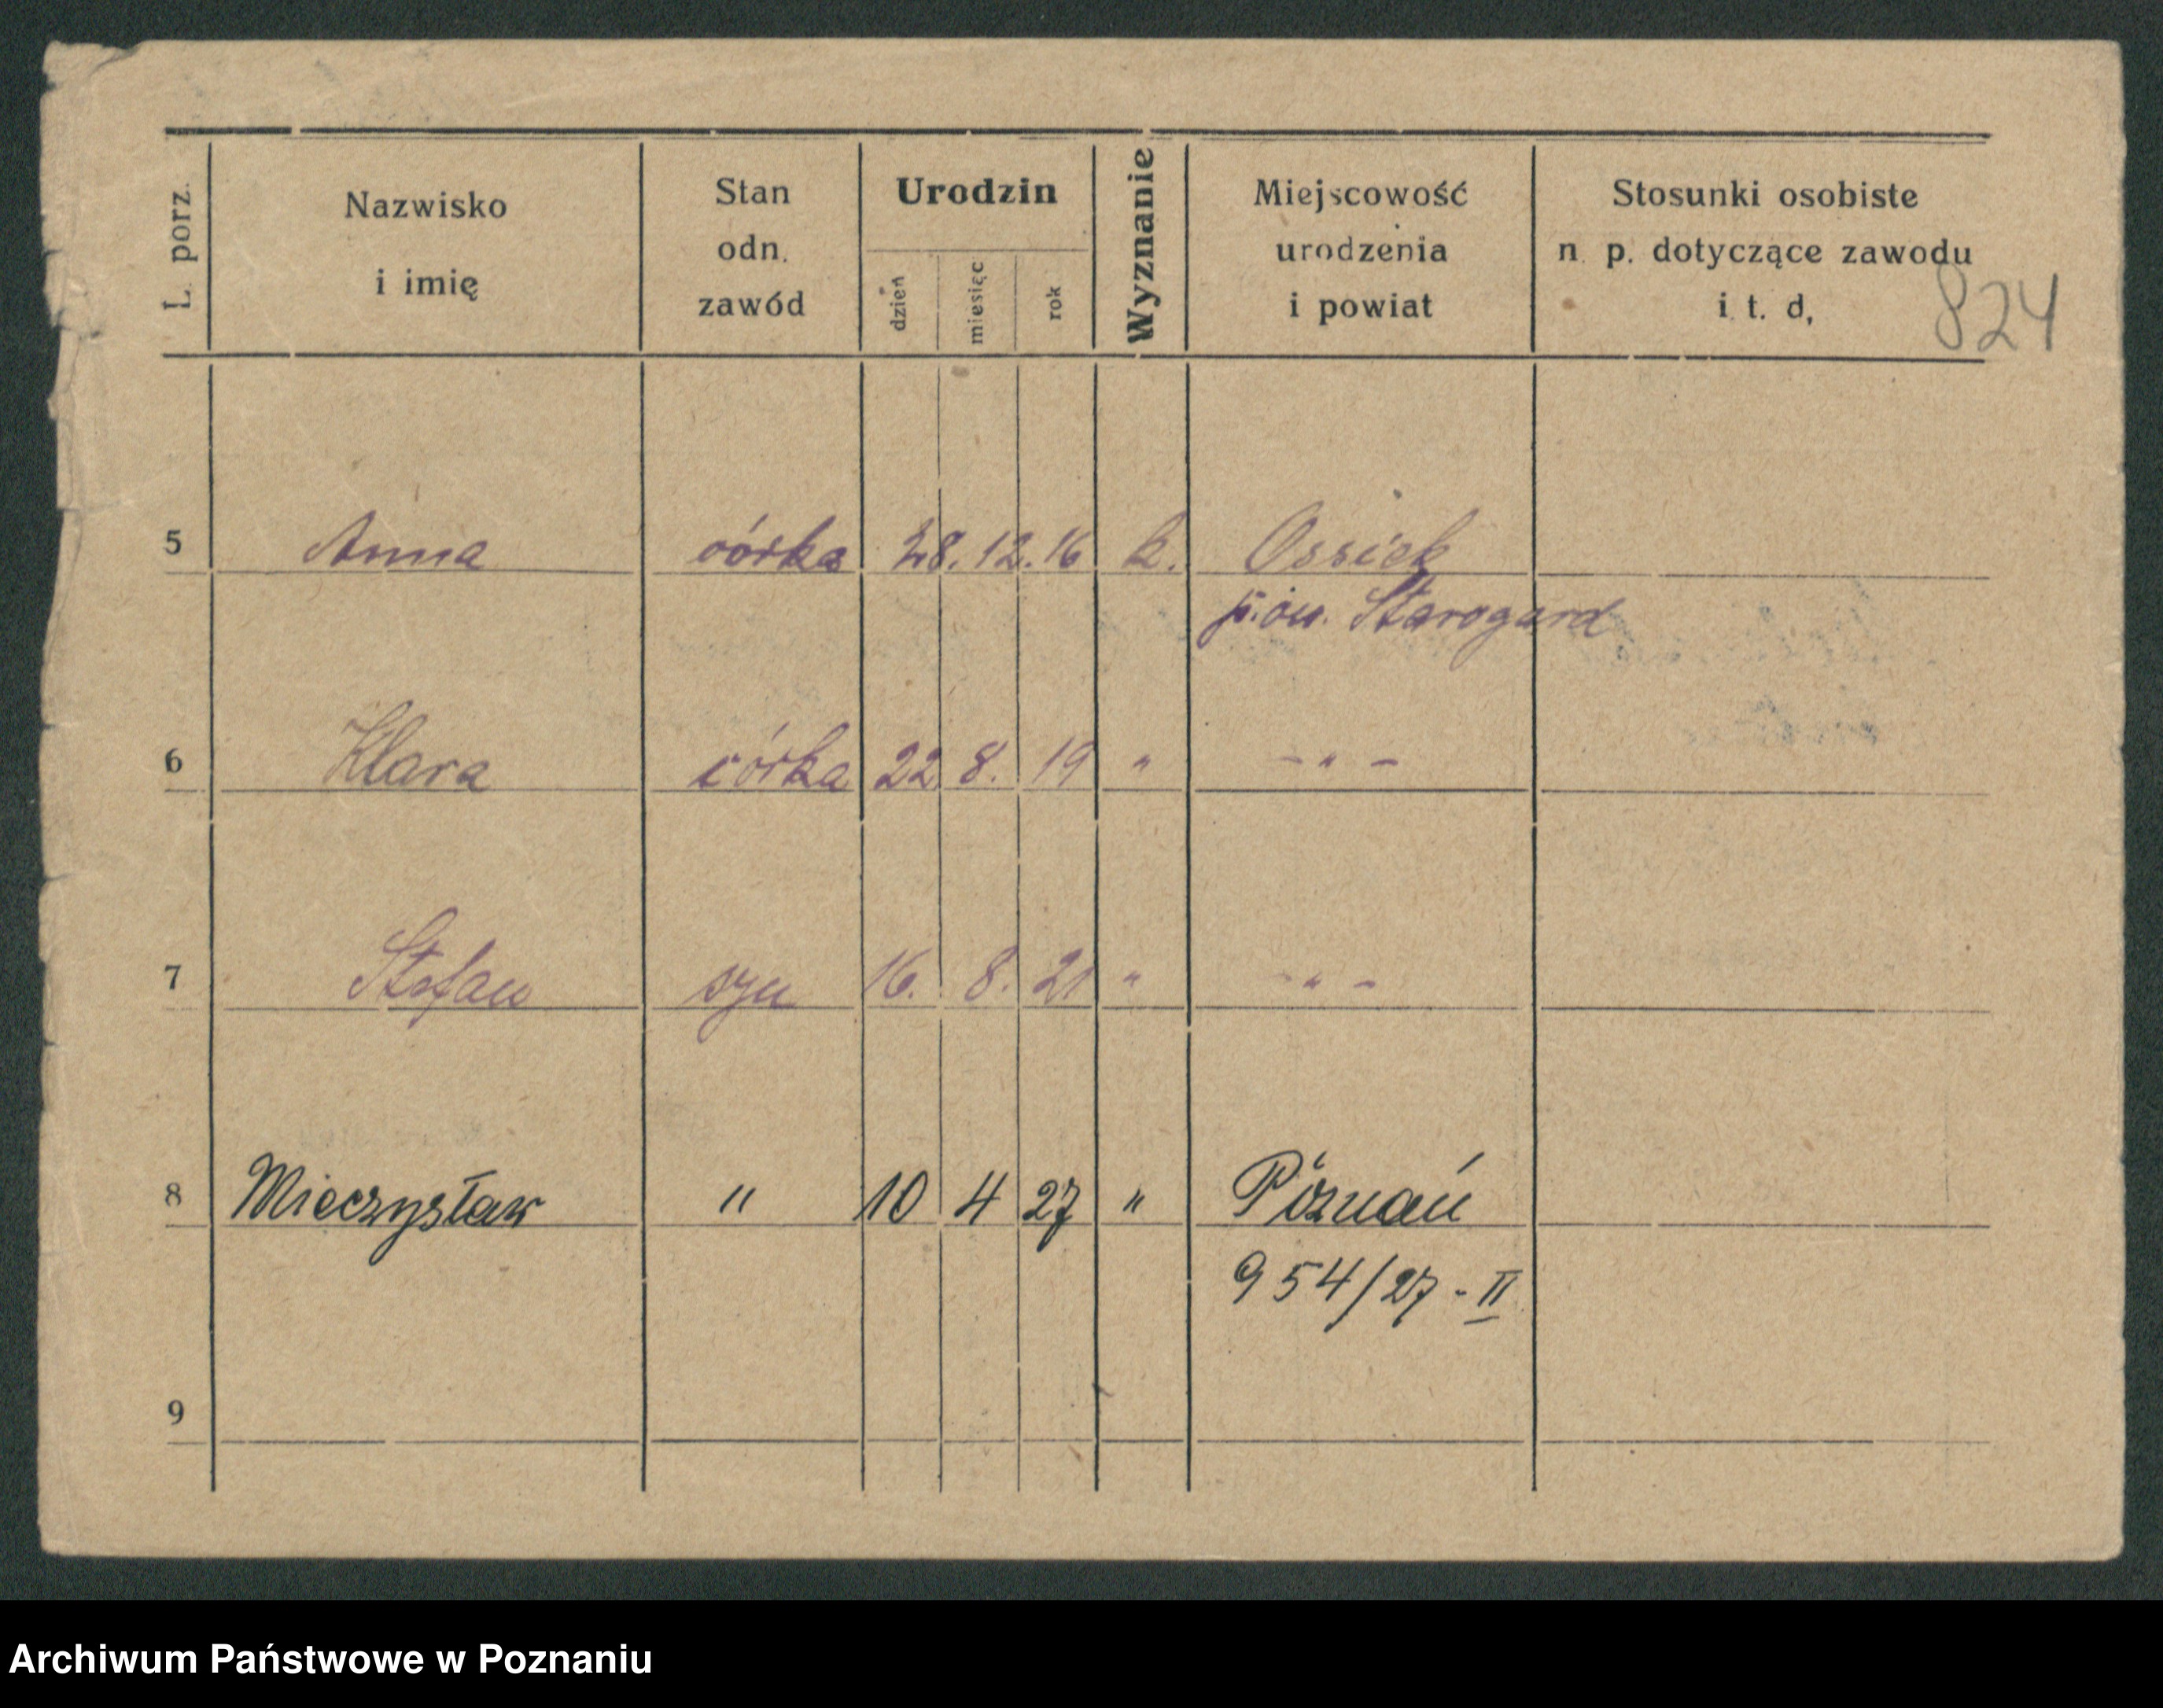 L. porz.
Nazwisko
i imię
Stan
odn.
zawód
Urodzin
dzień
miesięc
rok
Wyznanie
Miejscowość
urodzenia
i powiat
Stosunki osobiste
n p. dotyczące zawodu
i t. d,
824
5 Anna córka 28. 12. 16 k. Ossiek
pow. Starogard
6 Klara córka 22. 8. 19 " - " -
7 Stefan syn 16. 8. 21 " - " -
8 Mieczysław " 10 4 27 " Poznań
954/27 - II
9
Archiwum Państwowe w Poznaniu